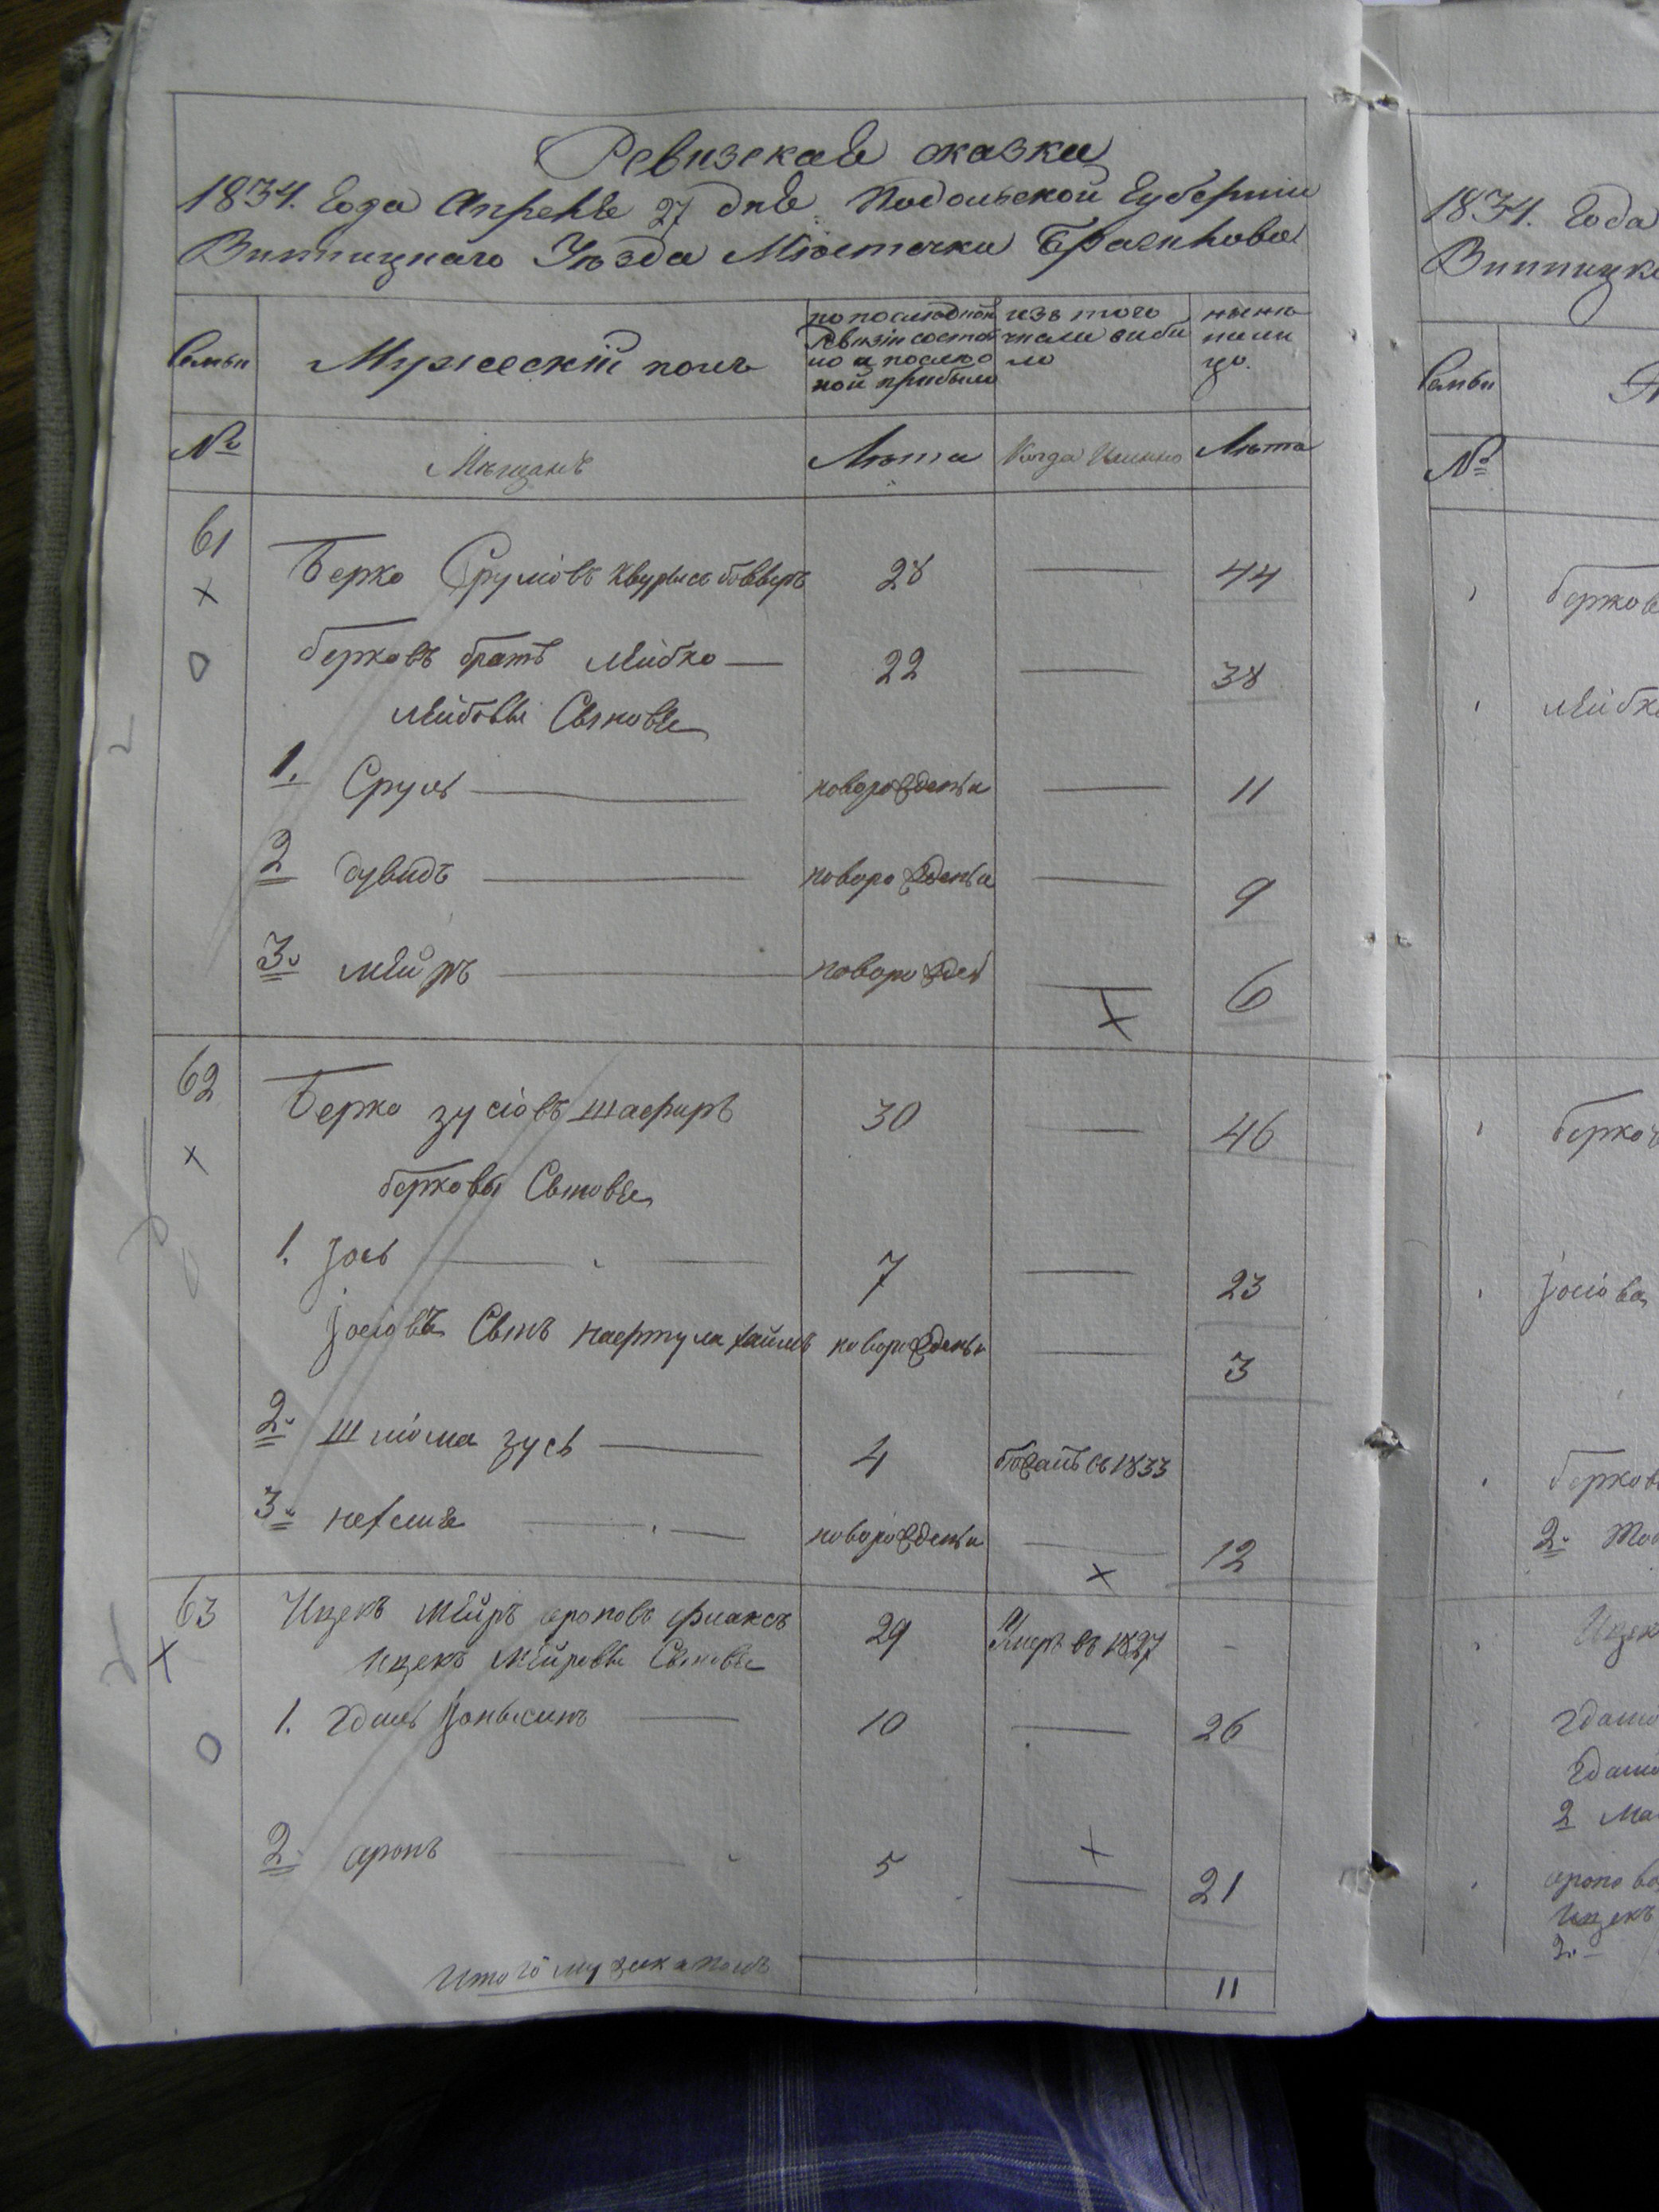 Ревизская сказка
1834. Года Апреля 27 дня Подольской Губернии
Винницкаго Уезда Местечки Браилова
Семьи
Мужескій полъ
по последней
Ревизіи состоя
ло и после о
ной прибыло
изъ того
числа выбы
ло
ныне
на ли
цо.
№
Мещанъ
Лета
Когда Именно
Лета
61
Берко Срулiовъ 28 44
берковъ братъ Лейбко 22 38
Лейбовы Сыновья
1. Сруль новорожденъи 11
2 Дувидъ новорожденъи 9
3. Мейръ новорожден 6
62
Берко зусiовъ шафиръ 30 46
берковы Сыновья
1. Iось 7 23
Iосiовъ Сынъ нафтула хаимъ новорожденъи 3
2. шлiома зусь 4 бежалъ съ 1833
3. нехемiя новорожденъи 12
63
Ицекъ Мейръ ароновъ флаксъ 29 Умеръ въ 1827
Ицекъ Мейровы Сыновья
1. гдаль 10 26
2. аронъ 5 21
Итого мужска полъ 11
1834. Года
Винницка
Семьи
№
берков
Лейбк
берков
Iосiова
берков
2.
Ицек
гдалiо
гдалiо
2 Ма
аронова
Ицекъ
2.